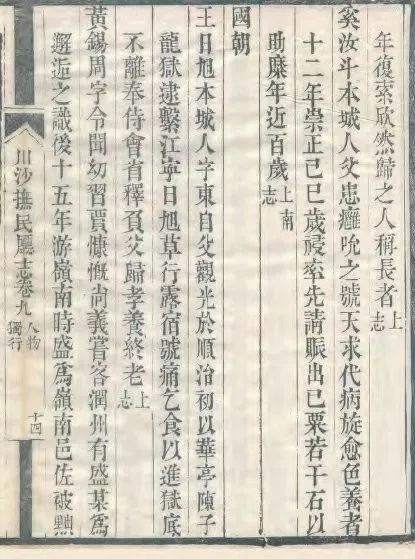 年復索欣然歸之人稱長者上志
奚汝斗本城人父患癰吮之號天求代病旋愈色養者
十二年崇正己巳歲祲率先請賑出己粟若干石以
助糜年近百歲上南志
國朝
王日旭本城人字東自父觀光於順治初以華亭陳子
龍獄逮繫江寧日旭草行露宿號痛乞食以進獄底
不離奉侍會首釋負父歸孝養終老上志
黃錫周字令聞幼習賈慷慨尚義嘗客潤州有盛某爲
邂逅之識後十五年游嶺南時盛爲嶺南邑佐被黜
川沙撫民廳志卷九 人物 獨行 十四